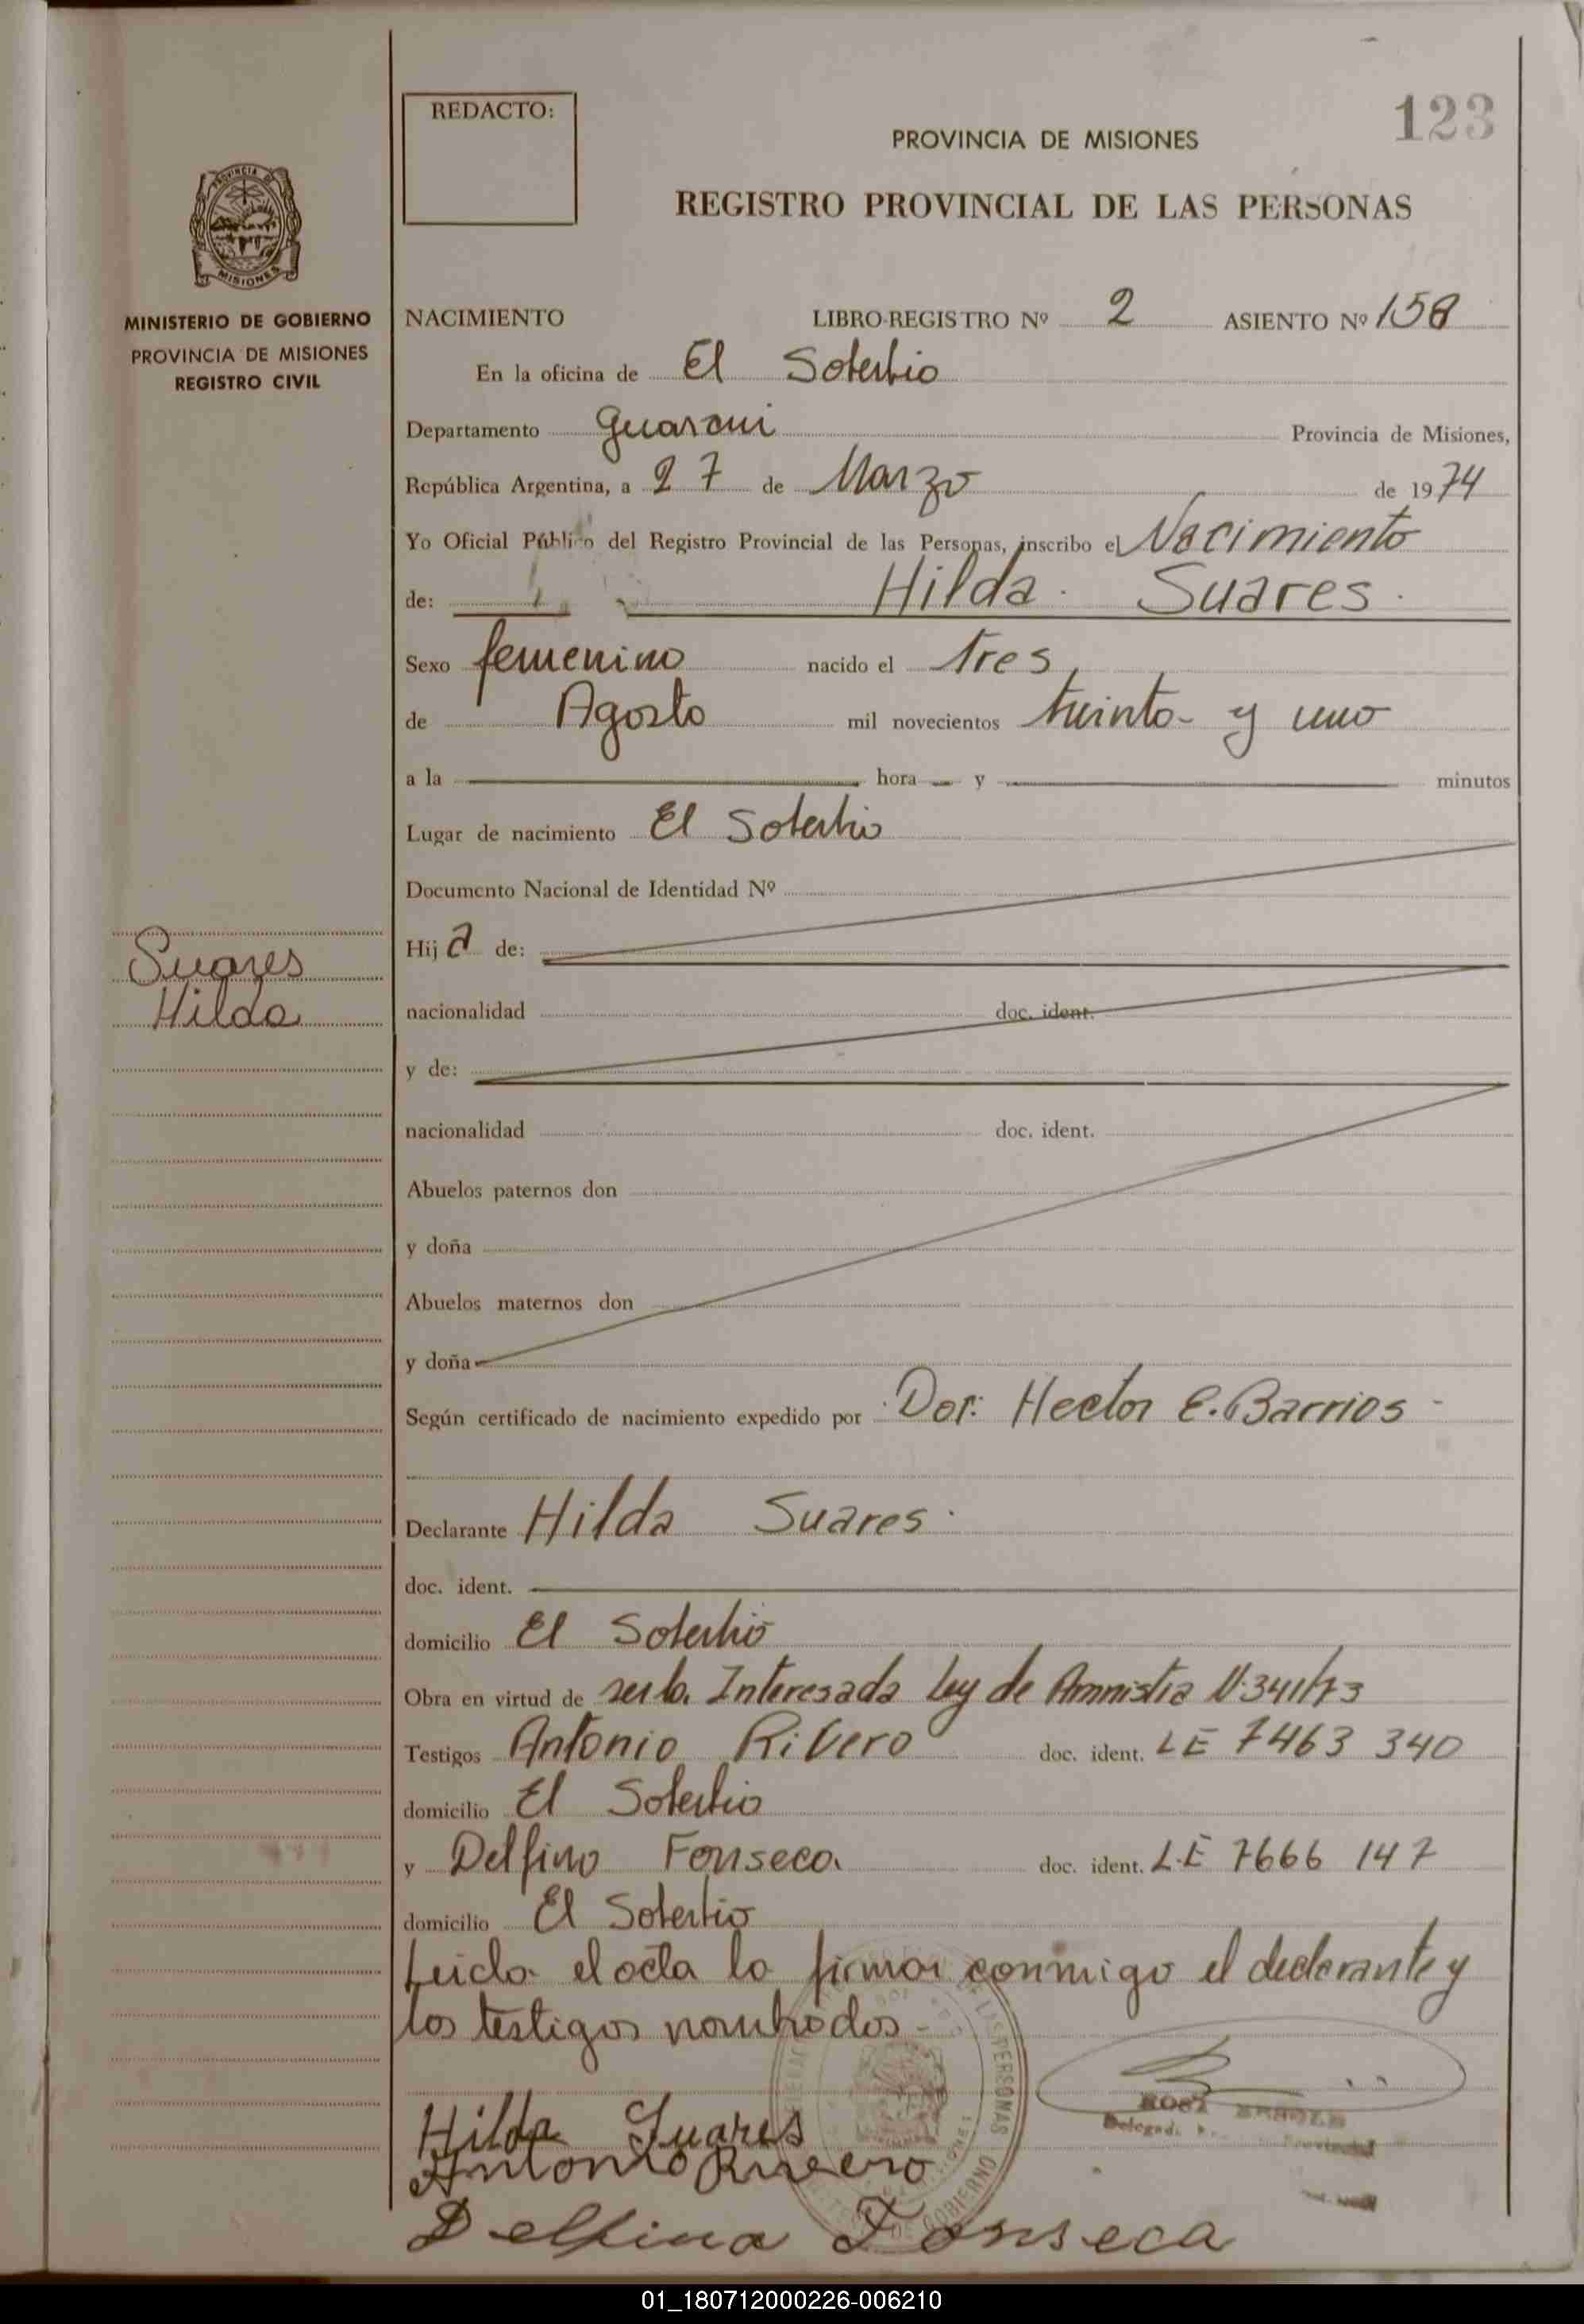 123
REDACTO:
PROVINCIA DE MISIONES
REGISTRO PROVINCIAL DE LAS PERSONAS
PROVINCIA DE
MISIONES
MINISTERIO DE GOBIERNO
PROVINCIA DE MISIONES
REGISTRO CIVIL
NACIMIENTO LIBRO-REGISTRO Nº 2 ASIENTO Nº 158
En la oficina de El Soberbio
Departamento Guarani Provincia de Misiones,
República Argentina, a 27 de Marzo de 1974
Yo Oficial Público del Registro Provincial de las Personas, inscribo el Nacimiento
de: Hilda Suares.
Sexo femenino nacido el tres
de Agosto mil novecientos treinta y uno
a la hora y minutos
Lugar de nacimiento El Soberbio
Documento Nacional de Identidad Nº
Hija de:
Suares
Hilda
nacionalidad doc. ident.
y de:
nacionalidad doc. ident.
Abuelos paternos don
y doña
Abuelos maternos don
y doña
Según certificado de nacimiento expedido por Dor: Hector E. Barrios -
Declarante Hilda Suares
doc. ident.
domicilio El Soberbio
Obra en virtud de ser la Interesada Ley de Amnistia N. 341/73
Testigos Antonio Rivero doc. ident. LE 7463 340
domicilio El Soberbio
y Delfino Fonseca doc. ident. L.E 7666 147
domicilio El Soberbio
Leida el acta la firman conmigo el declarante y
los testigos nombrados -
Hilda Suares
Antonio Rivero
Delfina Fonseca
01_180712000226-006210